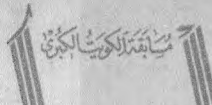 مسابقة الكويت الكبرى